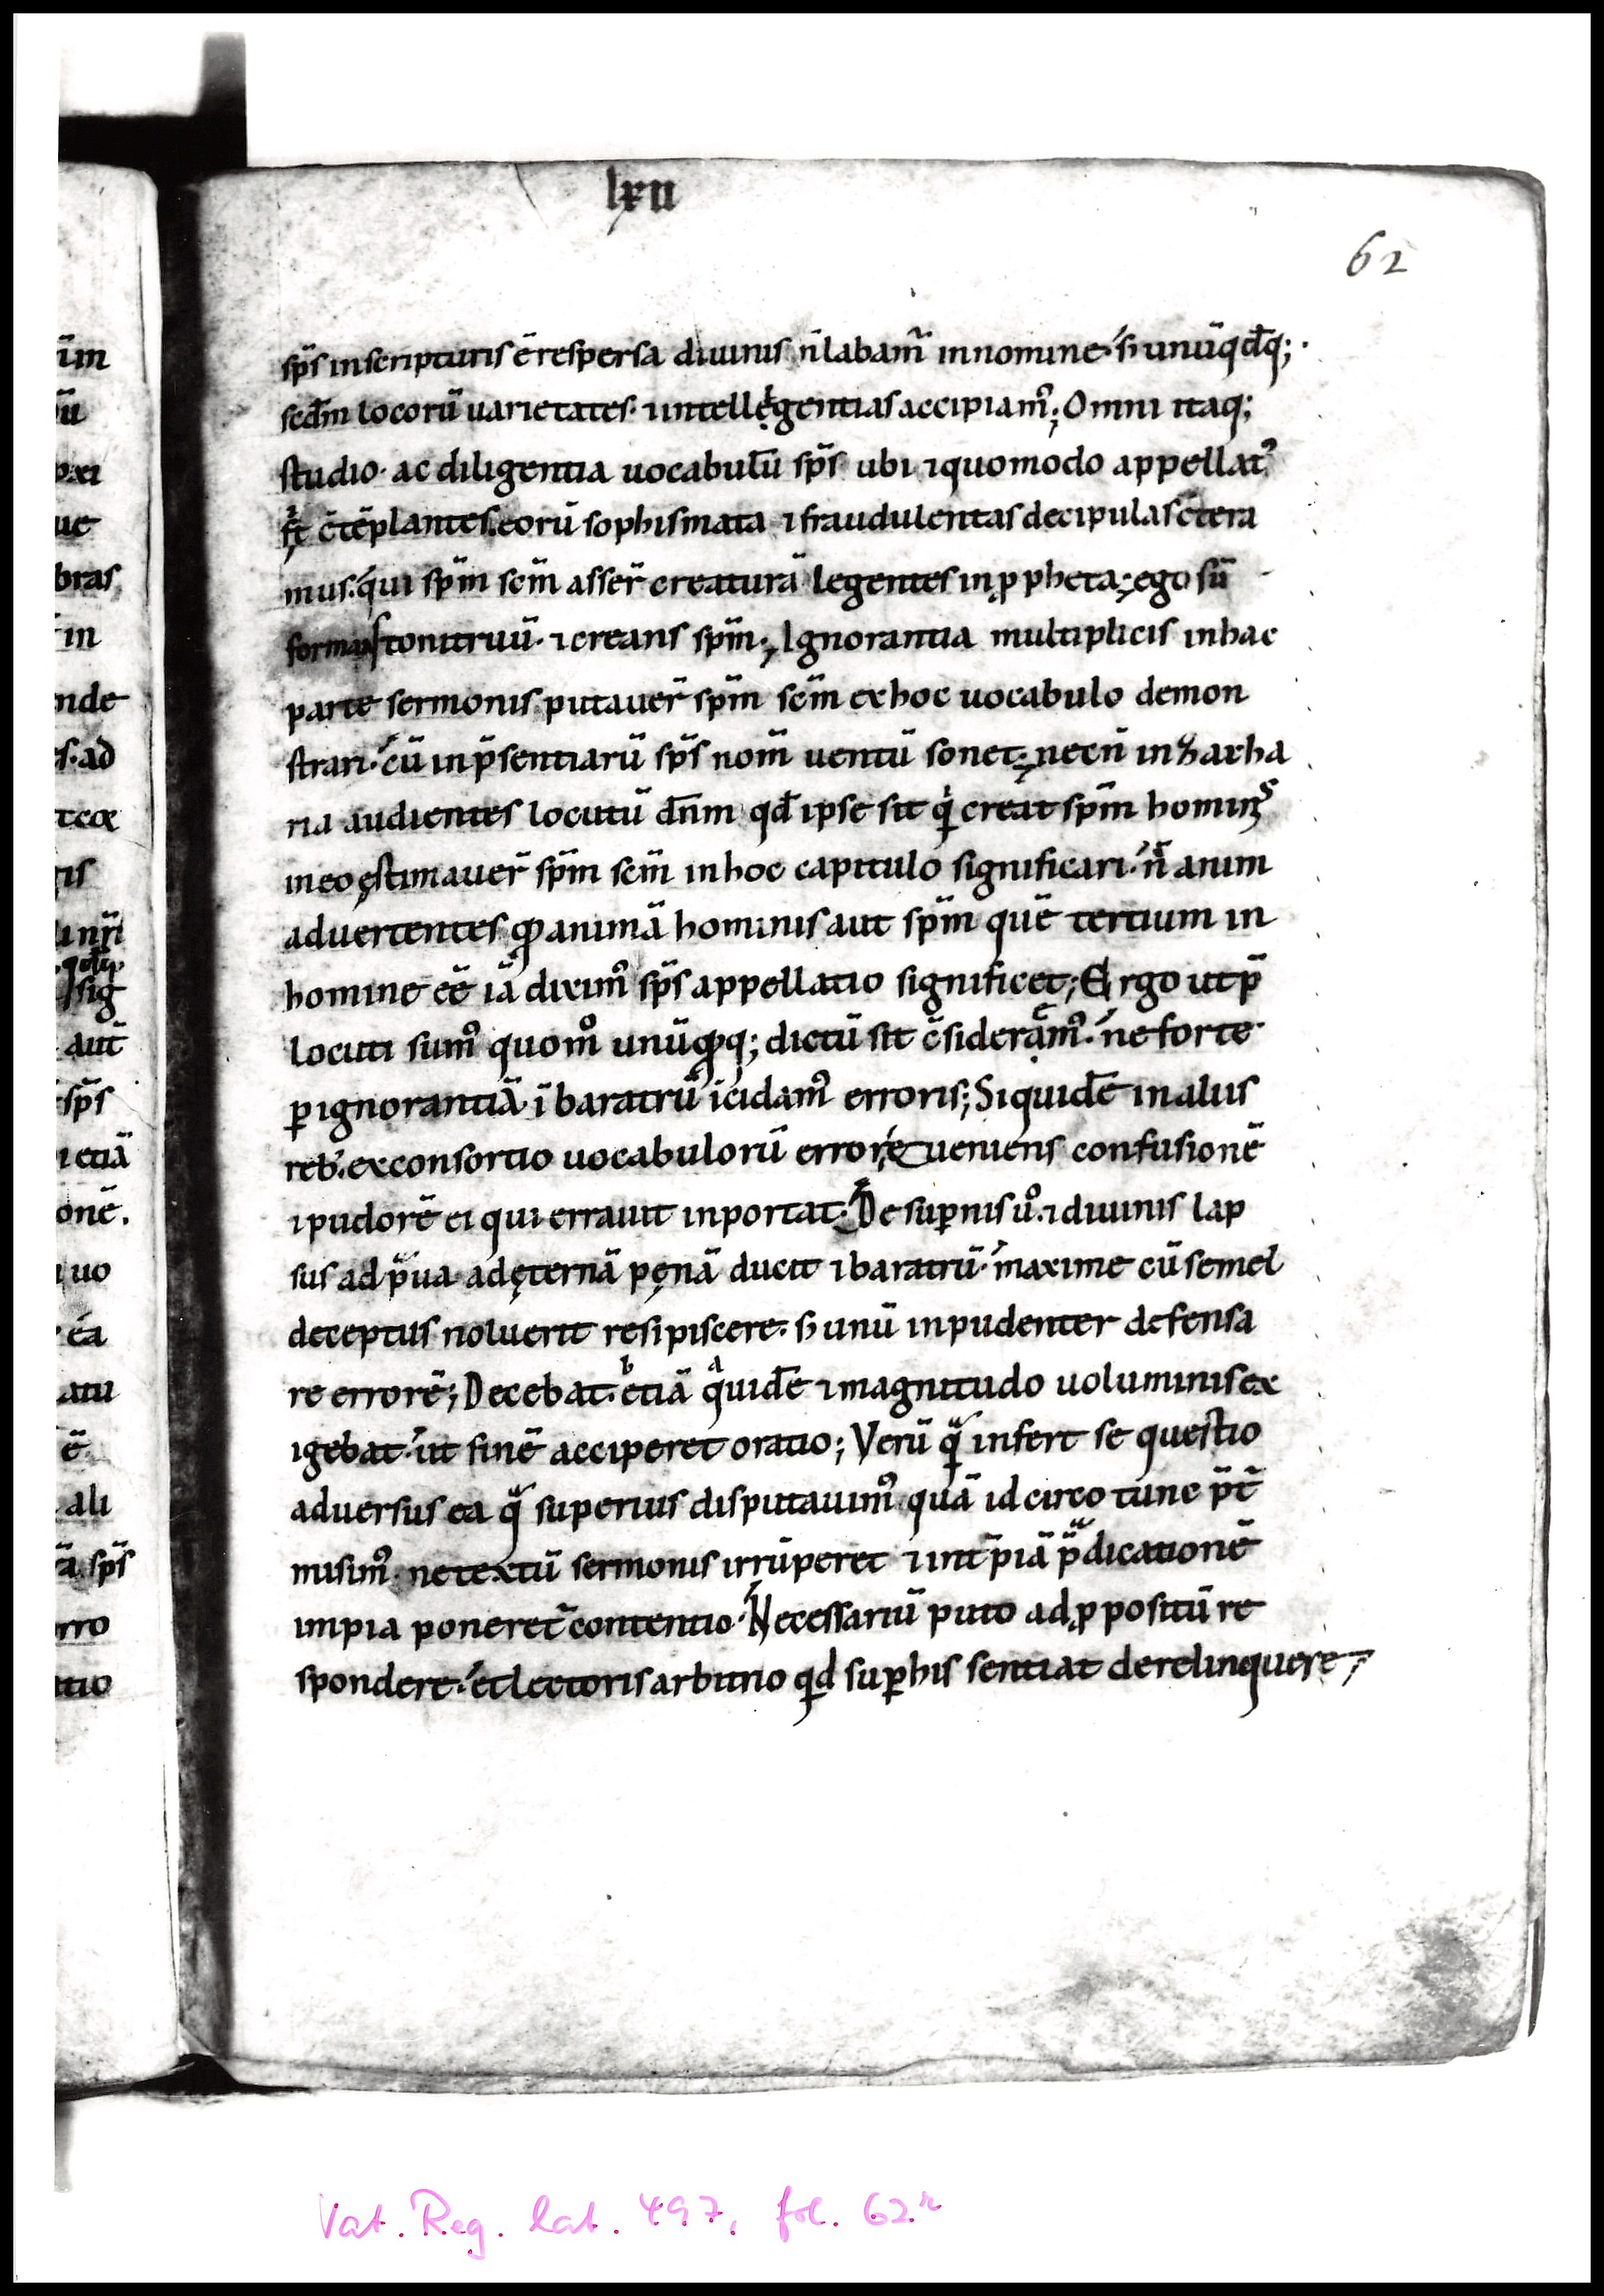 lxii
62
sp̄s inscripturis ē respersa diuinis n̄ labam̄ innomine· s; unūqd̄q;·
scd̄m locorū uarietates· ⁊intellęgentias accipiam᷒; Omni itaq;
studio· ac diligentia uocabulū sp̄s ubi ⁊quomodo appellat᷒
c̄tēplantes. eorū sophismata ⁊fraudulentas decipulas c̄tera
mus. qui sp̄m sc̄m asser̄ creaturā legentes in ꝓpheta; ego sū
formans tonitruū· ⁊creans sp̄m; Ignorantia multiplicis inhac
parte sermonis putauer̄ sp̄m sc̄m exhoc uocabulo demon
strari· cū inp̄sentiarū sp̄s nom̄ uentū sonet; necn̄ in zacha
ria audientes locutū dn̄m qd̄ ipse sit qi creat sp̄m hominis
ineo ęstimauer̄ sp̄m sc̄m inhoc capitulo significari· n̄ anim
aduertentes ꝙ animā hominis aut sp̄m quē tertium in
homine eē iā dixim᷒ sp̄s appellatio significet; Ergo utp̄
locuti sum᷒ quom᷒ unūꝙq; dictū sit c̄siderām᷒· ne forte
ꝑ ignorantiā· ī baratrū īcidam᷒ erroris; Siquidē inaliis
reb᷒. exconsortio uocabulorū errore ueniens confusionē
⁊pudorē ei qui errauit inportat· De suꝑnis u᷒· ⁊diuinis lap
sus ad p̄ua adęternā pęnā ducit ⁊baratrū· maxime cū semel
deceptus noluerit resipiscere· s; unū inpudenter defensa
re errorē; Decebat· etiā quidē ⁊magnitudo uoluminis ex
igebat· ut finē acciperet oratio; Verū qͣ infert se questio
aduersus ea qͣ superius disputauim᷒ quā idcirco tunc p̄t̄
misim᷒· ne textū sermonis irrūperet ⁊int̄ piā p̄dicationē
impia poneret̄ contentio· Necessariū puto ad ꝓpositū re
spondere· et lectoris arbitrio qd suꝑhis sentiat derelinquere;
Vat. Reg. lat. 497, fol. 62r